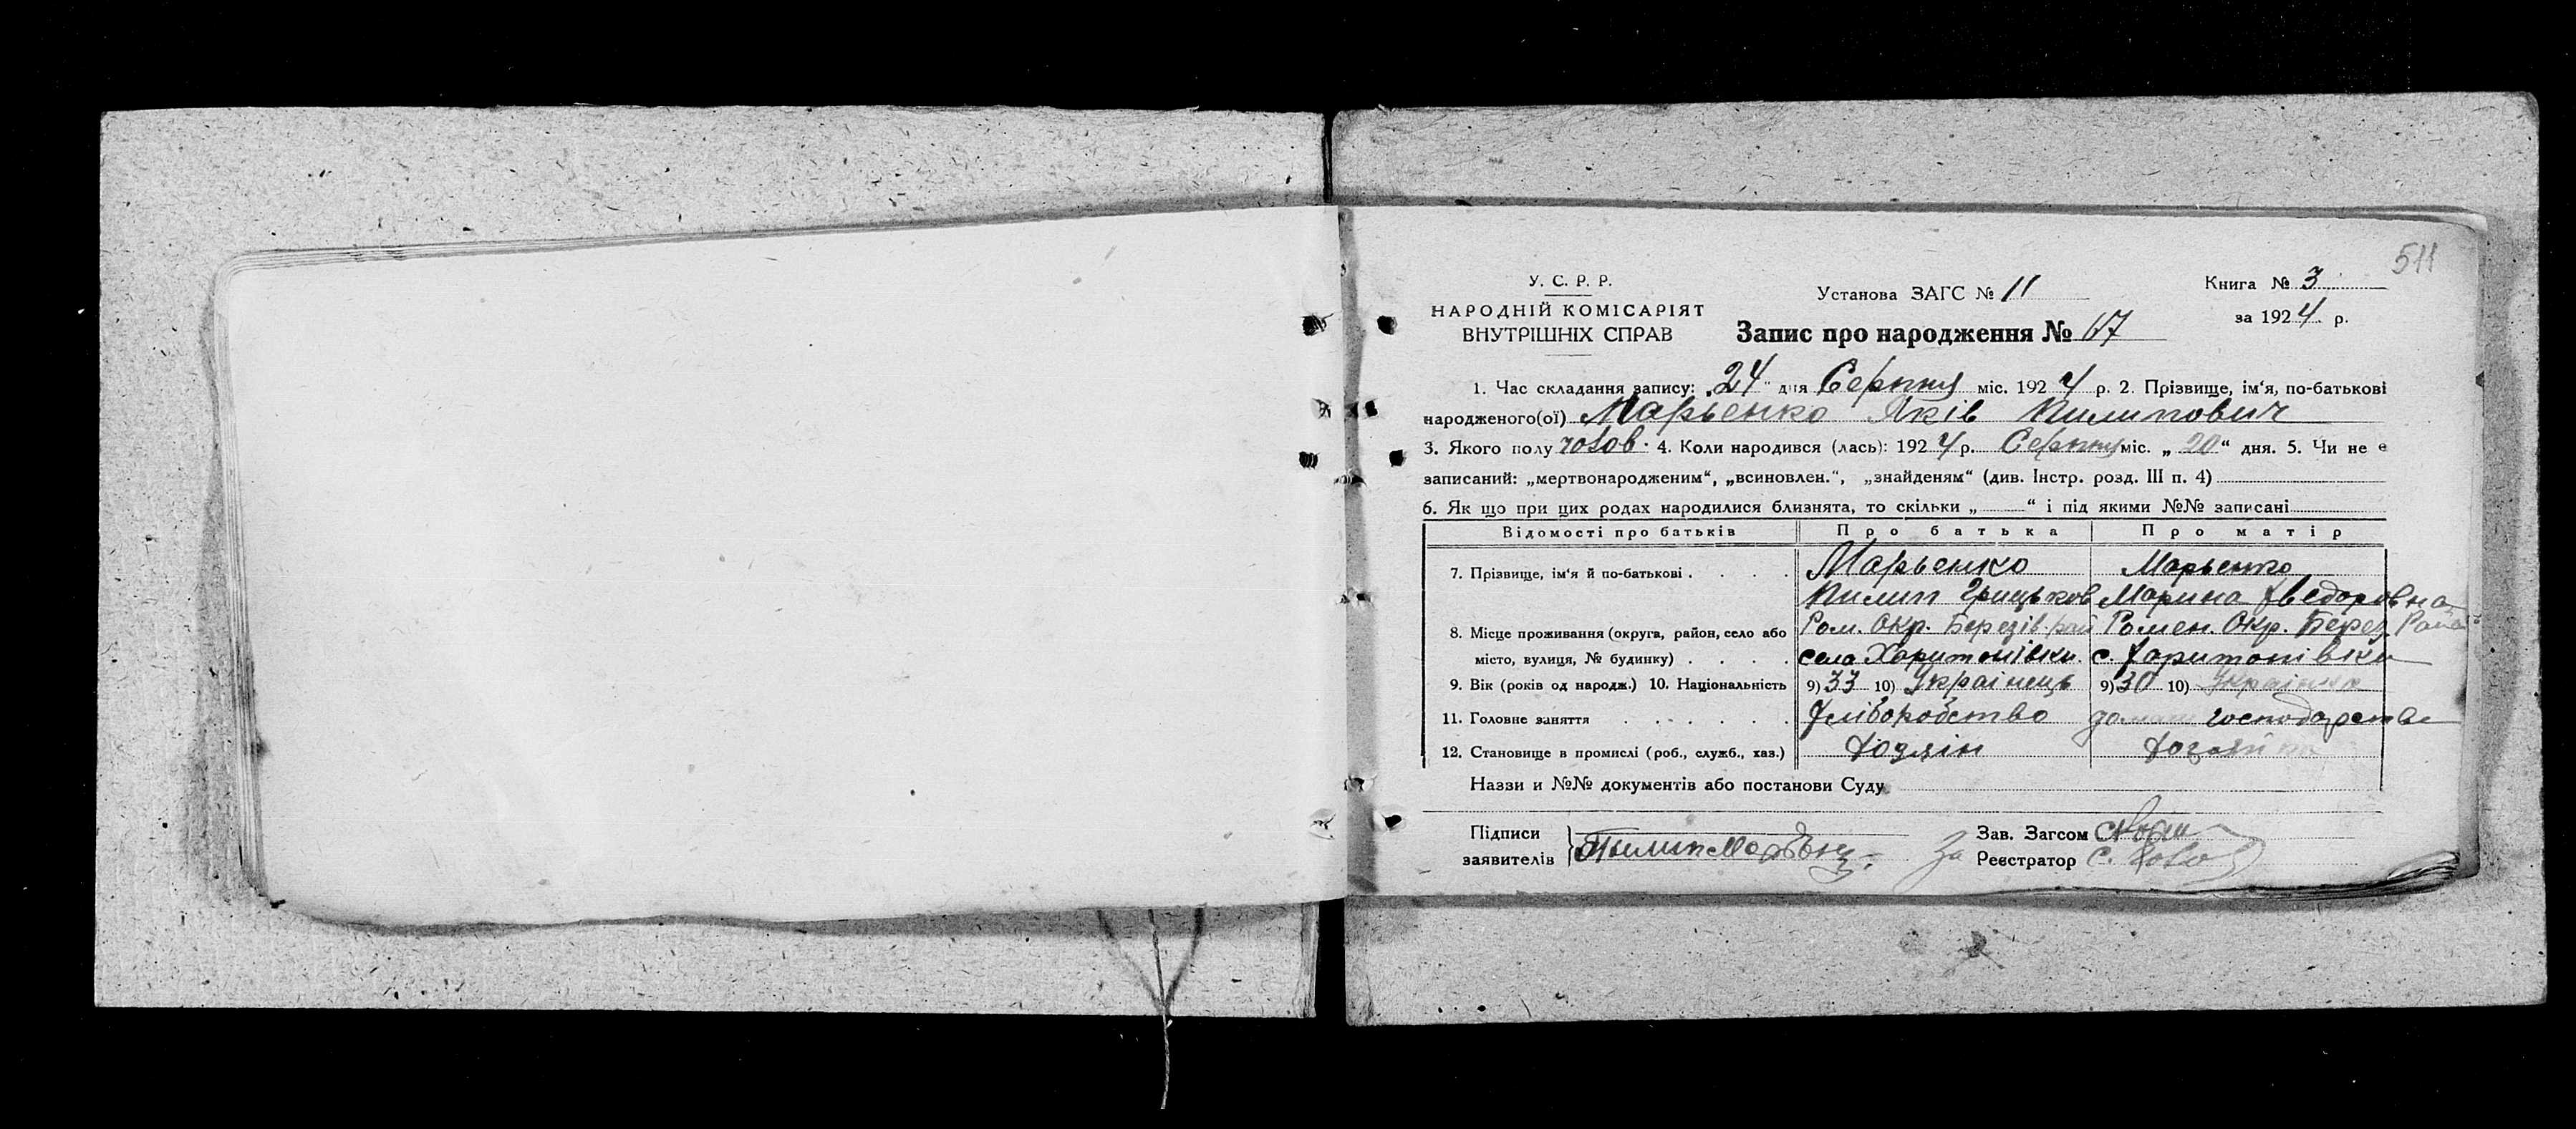 511
У. С. Р. Р.
НАРОДНІЙ КОМІСАРІЯТ
ВНУТРІШНІХ СПРАВ
Установа ЗАГС № 11
Книга № 3
за 1924 р.
Запис про народження №
1. Час складання запису: „24“ дня Серпня міс. 1924 р. 2. Прізвище, ім‘я, по-батькові
народженого(ої) Марьенко Яків Пилипович
3. Якого полу чолов. 4. Коли народився (лась): 1924 р. Серпня міс. „20“ дня. 5. Чи не е
записаний: „мертвонародженим“, „всиновлен.“, „знайденям“ (див. Інстр. розд. III п. 4)
6. Як що при цих родах народилися близнята, то скільки „ “ і під якими №№ записані
Відомості про батьків Про батька Про матір
7. Прізвище, ім‘я й по-батькові . . . . Марьенко Марьенко
Пилип Грицьков Марина Хведоровна
8. Місце проживання (округа, район, село або Ром. Окр. Березів. рай Ромен. Окр. Берез. Район
місто, вулиця, № будинку) . . . . села Харитонівки. с. Харитонівки
9. Вік (років од народж.) 10. Національність 9) 33 10) Українець 9) 30 10) Українка
11. Головне заняття . . . . . . Хліборобство домаш господарство
12. Становище в промислі (роб., служб., хаз.) Хозяін
Назви и №№ документів або постанови Суду
Підписи
заявителів
Пилип
Зав. Загсом
За Реєстратор С.